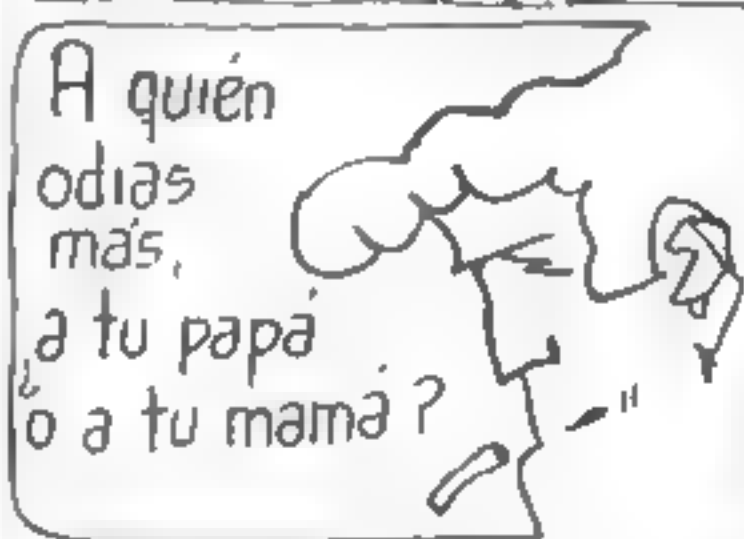 A quién
odias
más,
a tu papá
¿o a tu mamá?